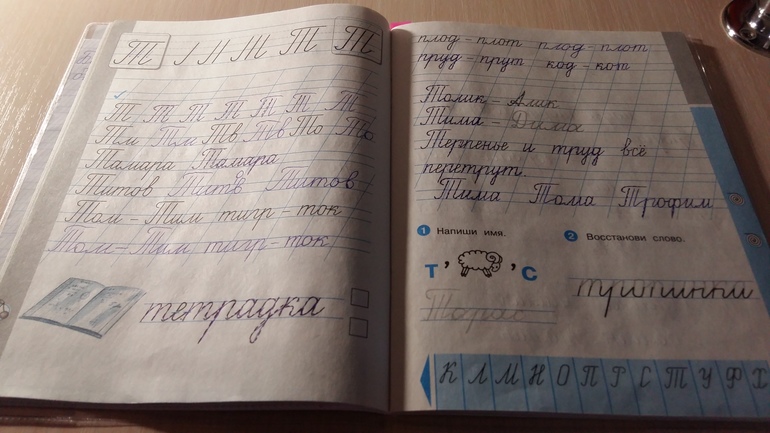 Т Т Т
Т Т Т Т Т Т Т
Тм Тм Тв Тв То То
Тамара Тамара
Титов Титов Титов
Том – Тим тигр – ток
Том – Тим, тигр – ток
тетрадка
плод – плот плод – плот
пруд – прут код – кот
Толик – Алик
Тима – Дима
Терпенье и труд всё
перетрут.
Тима Тома Трофим
1 Напиши имя. 2 Восстанови слово.
Т ’ ’ С
Тарас
К Л М Н О П Р С Т У Ф Х